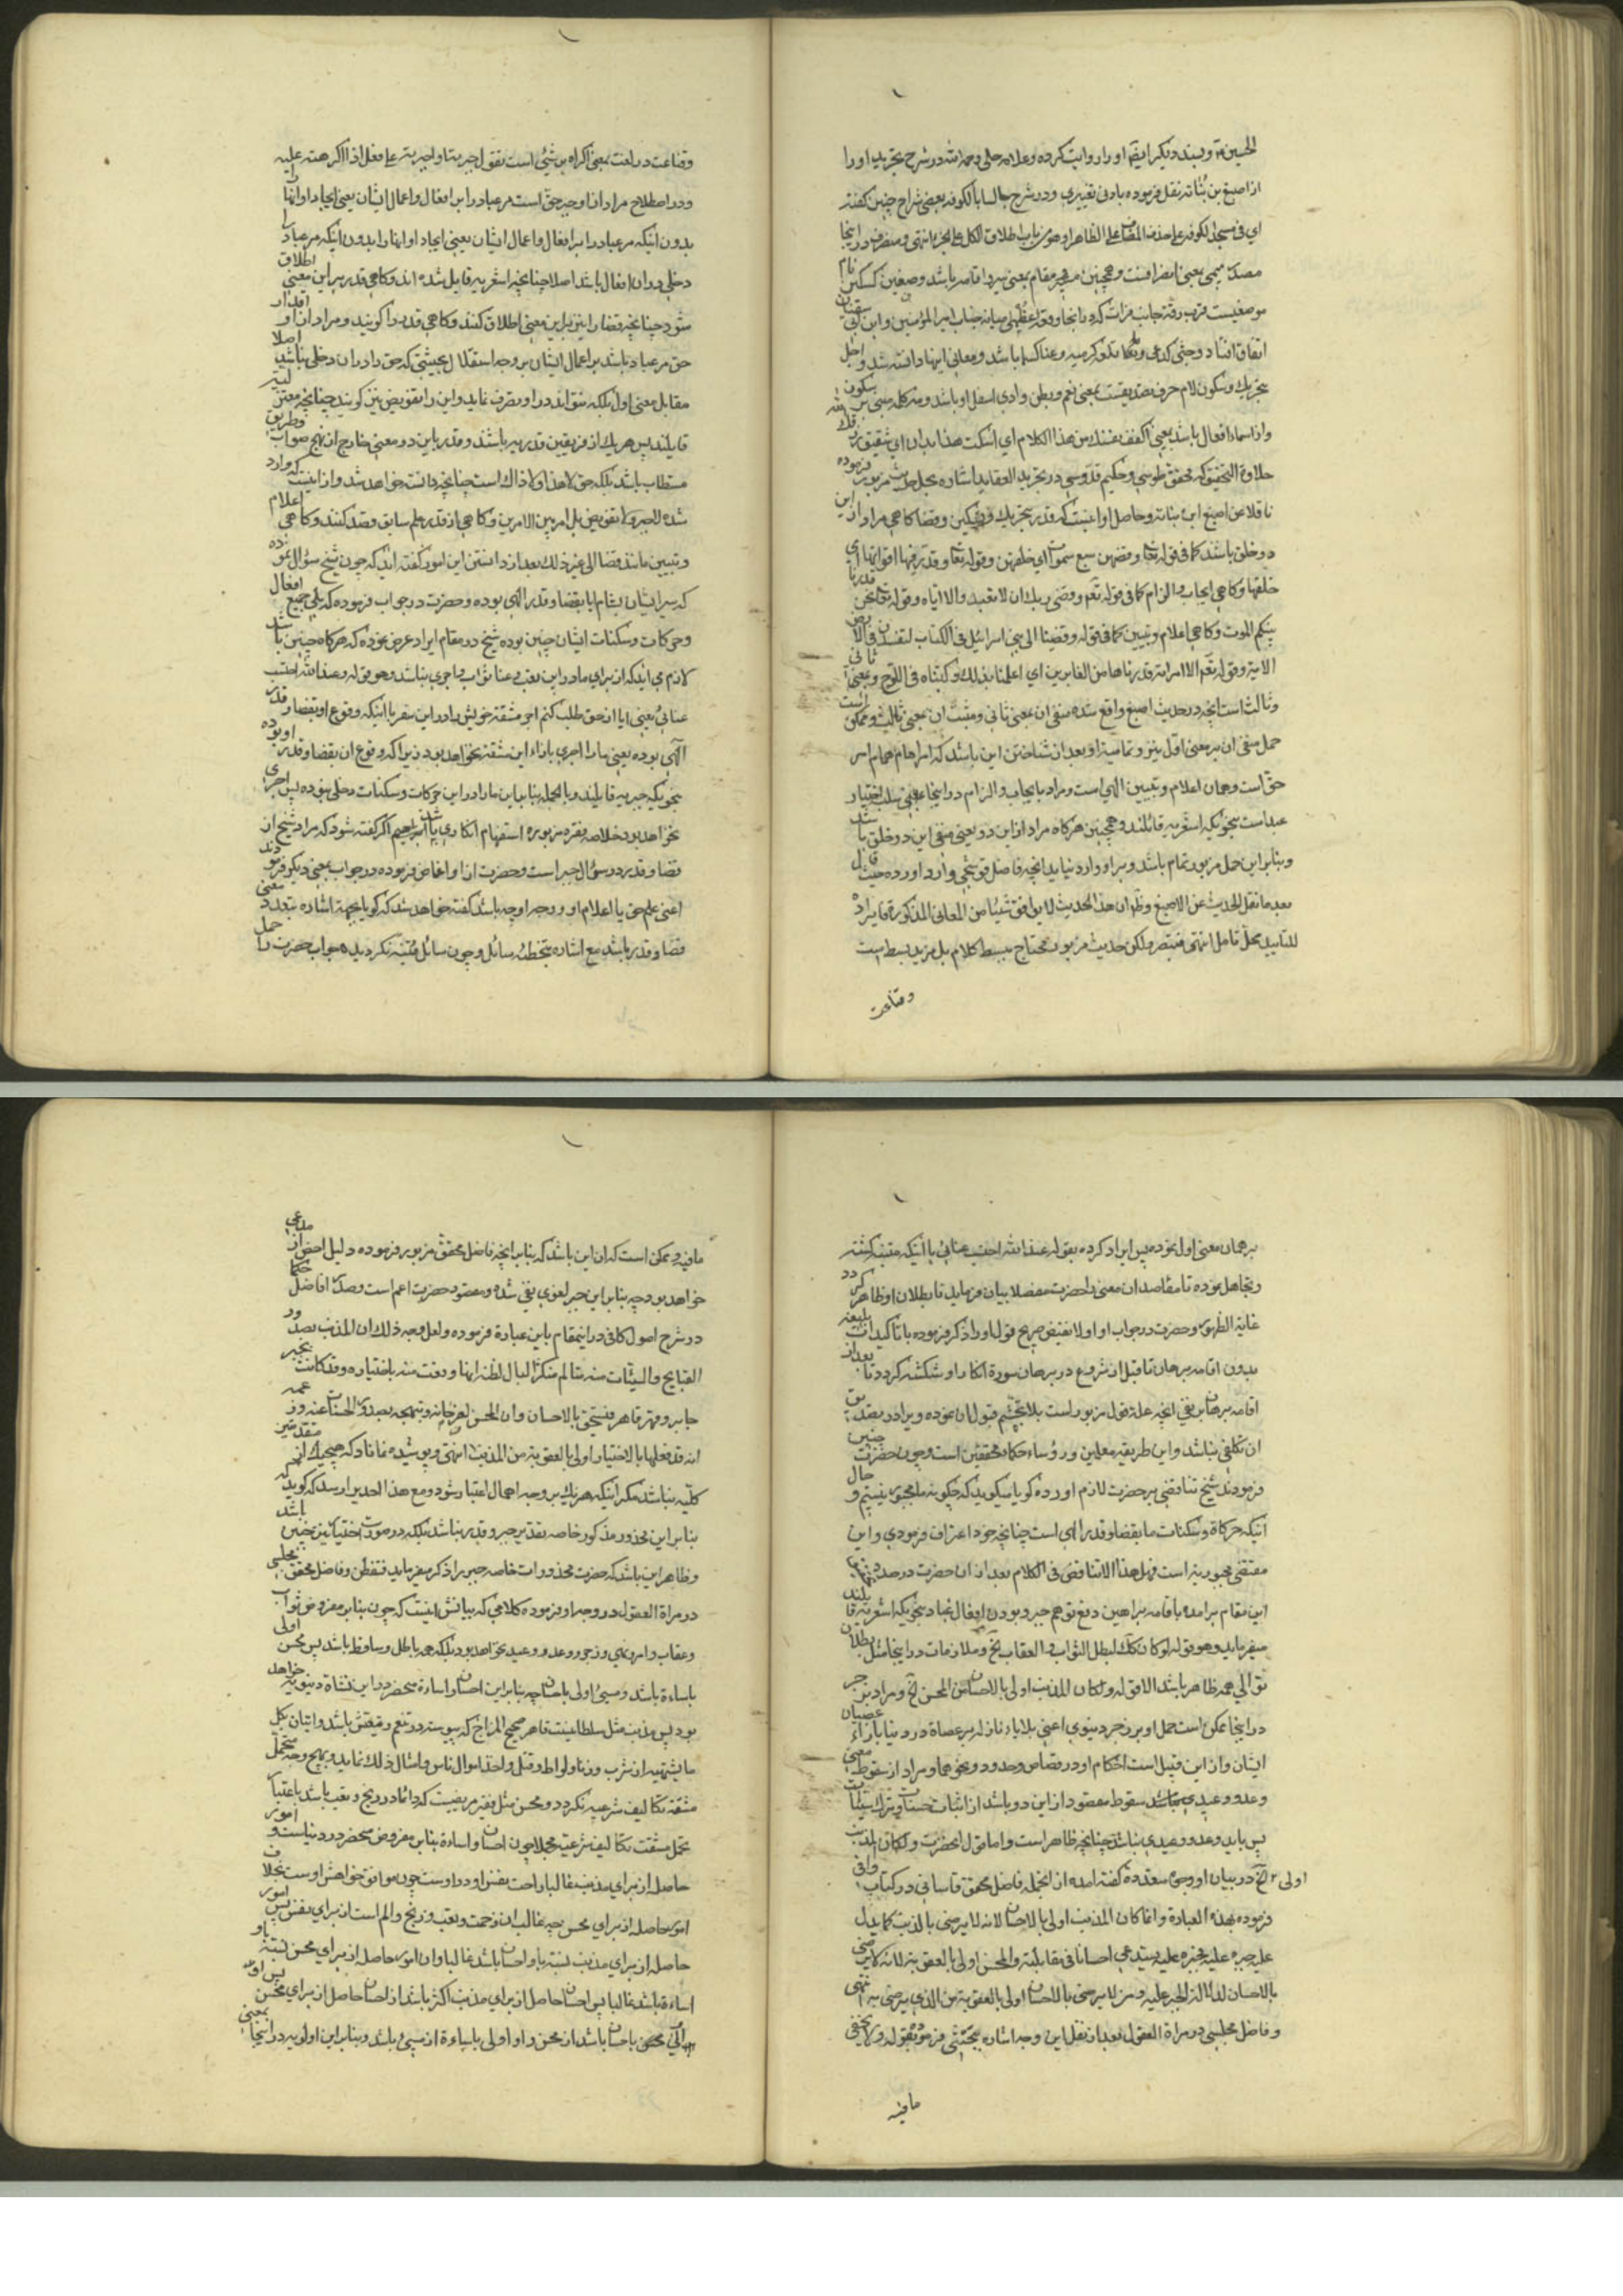 الحسین و بسند دیگر ایضا او را روایت کرده و علامه حلی رحمه الله در شرح تجرید او را
از اصبغ بن نباته نقل فرموده بادنی تغییری و در شرح جالسا بالکوفه بعضی شراح چنین گفته
ای فی مسجد الکوفه علی حذف المضاف علی الظاهر او هو من باب اطلاق الکل علی الجزء انتهی و منصرف در اینجا
مصدر میمی بمعنی انصرافست و همچنین مقام بمعنی باشد و صفین کسکین نام
موضعیست قرب رقه جانب فرات که در انجا وقعه عظمی میانه جناب امیر المؤمنین و ابن ابی سفیان
اتفاق افتاد و جثی کدعی و عنا کسما باشد و معانی اینها دانسته شد و اجل
بتحریک و سکون لام حرف تصدیقست بمعنی نعم و بطن وادی اسفل او باشد و مه کلمه مبنی بر سکون
و از اسماء افعال باشد یعنی اکفف نفسک من هذا الکلام ای اسکت
علاوة التحقیق که محقق طوسی و حکیم قدوسی در تجرید العقاید اشاره بحدیث مزبور فرموده
ناقلا عن اصبغ ابن نباته و حاصل او اینست که قدر بتحریک و تسکین و قضا کاهی مراد از این
دو خلق باشد کما فی قوله تعالی و قضهن سبع سموات ای خلقهن و قوله تعالی و قدر فیها اقواتها ای
خلقها و کاهی ایجاب و الزام کما فی قوله تعالی و قضی ربک ان لا تعبدوا الا ایاه و قوله تعالی نحن قدرنا
بینکم الموت و کاهی اعلام و تبیین کما فی قوله و قضینا الی بنی اسرائیل فی الکتاب لتفسدن فی الارض
الایة و قوله تعالی الا امراته قدرناها من الغابرین ای اعلمنا بذلک و کتبناه فی اللوح و بمعنی ثانی
و ثالث است انچه در حدیث اصبغ واقع شده منفی ان بمعنی ثانی و مثبت ان بمعنی ثالث و ممکن است
حمل منفی ان بر معنی اول نیز و تمامیت او بعد از شناختن این باشد که
حق است و همان اعلام و تبیین الهی است و مراد بایجاب و الزام در اینجا بمعنی سلب اختیار
عبد است بنحویکه اشعریه قائلند و همچنین هرکاه مراد از این دو یعنی منفی این دو خلق باشد
و بنابراین حمل مزبور تمام باشد و بر او وارد نیاید انچه فاضل قوشجی وارد اورده حیث قال
بعد ما نقل الحدیث عن الاصبغ و ظهر ان هذا الحدیث لا یوافق شیئا من المعانی المذکورة فایراده
للتایید محل تامل انتهی فتبصر ولکن حدیث مزبور محتاج ببسط کلام بل مزید بسط است
وقناعت
وقناعت در لغت بمعنی اکراه بر شیئ است تقول جبرته علی فعل اذا اکرهته علیه
و در اصطلاح مراد از او جبر حق است مر عباد را بر افعال و اعمال ایشان یعنی ایجاد او انها را
بدون اینکه مر عباد را بر افعال و اعمال ایشان یعنی ایجاد او انها را بدون اینکه مر عباد را
دخلی در ان افعال باشد اصلا چنانچه اشعریه قایل شده اند و کاهی قدر بر این معنی اطلاق
شود چنانچه قضا را نیز بر این معنی اطلاق کنند و کاهی قدر را کویند و مراد از او اقدار
حق مر عباد باشد بر اعمال ایشان بر وجه استقلال بحیثیتی که حق را در ان دخلی نباشد اصلا
مقابل معنی اول بلکه نتواند در او تصرف نماید و این را تفویض نیز کویند چنانچه معتزلیه
قایلند پس هر یک از فریقین قدریه باشند و قدر باین دو معنی خارج از نهج صواب و طریق
مستطاب باشد بلکه حق لا هذا و لا ذاک است چنانچه دانسته خواهد شد و از اینست که وارد
شده لا جبر و لا تفویض بل امر بین الامرین و کاهی از قدر علم سابق قصد کنند و کاهی اعلام
و تبیین مانند قضا الی غیر ذلک بعد از دانستن این امور کفته اند که چون شیخ سؤال نموده
که سیر ایشان بشام ایا بقضا و قدر الهی بوده و حضرت در جواب فرموده که بلی جمیع افعال
و حرکات و سکنات ایشان چنین بوده شیخ در مقام ایراد عرض نموده که هرکاه چنین باشد
لازم می اید که از برای ما در این تعب و عنا ثواب و اجری نباشد و هو قوله عند الله احتسب
عنائی یعنی ایا از حق طلب کنم اجر مشقت خویش را در این سفر با اینکه وقوع او بقضا و قدر
الهی بوده یعنی ما را اجری بازاء این مشقت نخواهد بود زیرا که وقوع ان بقضا و قدر او بوده
بنحویکه جبریه قایلند و بالجمله بنابراین ما را در این حرکات و سکنات دخلی نبوده پس اجری
نخواهد بود خلاصه فقره مزبوره استفهام انکاری باشد اکر کفته شود که مراد شیخ از
قضا و قدر در سؤال جبر است و حضرت از او اغماض فرموده در جواب بمعنی دیکر فرمودند
اعنی علم حق یا اعلام او و وجه او چه باشد کفته خواهد شد که کویا بجهة اشاره بتعدد معنی
قضا و قدر باشد مع اشاره بتخطئه سائل و چون سائل متنبه نکردید جواب حضرت را حمل
بر همان معنی اول نموده پس ایراد کرده بقوله عند الله احتسب عنائی یا اینکه متنبه کشته
و تجاهل نموده تا مفاسد ان معنی را حضرت مفصلا بیان فرماید تا بطلان او ظاهر کردد
غایة الظهور و حضرت در جواب او اولا نقیض صریح قول او را ذکر فرموده با تاکیدات بلیغه
بدون اقامه برهان تا قبل از شروع در برهان سورة انکار او شکسته کردد تا بعد از
اقامه برهان بر نفی انچه علة قول مزبور است بلا تجشم قبول ان نموده
ان تکلفی نباشد و این طریقه معلمین و رؤساء حکماء محققین است و چون حضرت چنین
فرمودند شیخ تناقضی بر حضرت لازم اورده کویا میکوید که چکونه ما مجبور نیستیم و حال
اینکه حرکاة و سکنات ما بقضا و قدر الهی است چنانچه خود اعتراف فرمودی و این
مقتضی مجبوریت است فهل هذا الا تناقض فی الکلام بعد از ان حضرت در صدد
این مقام برامده باقامه براهین دفع توهم جبر و بودن افعال عباد بنحویکه اشعریه قایلند
میفرماید و هو قوله لو کان کذلک لبطل الثواب و العقاب الخ و ملازمات در اینجا مثل بطلان
توالی همه ظاهر باشد الا قوله و لکان المذنب اولی بالاحسان من المحسن الخ و مراد بزجر
در اینجا ممکن است حمل او بر زجر دنیوی اعنی بلایاء نازله بر عصاة در دنیا بازاء عصیان
ایشان و از این قبیل است احکام او در قصاص و حدود و نحو هما و مراد از سقوط معنی
وعد و وعید سقوط مقصود از این دو باشد از اثبات حسنات و ترک سیئات
پس باید وعد و وعیدی نباشد چنانچه ظاهر است و اما قول حضرت و لکان المذنب
اولی الخ در بیان او وجوه متعدده کفته امده از انجمله فاضل محقق قاسانی در کتاب وافی
فرموده بهذه العبارة و انما کان المذنب اولی بالاحسان لانه لا یرضی بالذنب کما یدل
علیه جبره علیه فجبره علیه یستدعی احسانا فی مقابلته و المحسن اولی بالعقوبة لانه لا یرضی
بالاحسان لدلالة الجبر علیه و من لا یرضی بالاحسان اولی بالعقوبة من الذی یرضی به انتهی
و فاضل مجلسی در مراة العقول بعد از نقل این وجه اشاره ببحثی فرموده بقوله و لا یخفی
ما فیه
ما فیه و ممکن است که ان این باشد که بنابر انچه فاضل محقق مزبور فرموده دلیل اخص از مدعی
خواهد بود چه بنابراین جبر لغوی نفی شده و مقصود حضرت اعم است و صدر افاضل حکما
در شرح اصول کافی در اینمقام باین عبارة فرموده و لعل وجه ذلک ان المذنب بصدور
القبایح و السیئات منه متالم منکسر البال لظنه انها وقعت منه باختیاره و قد کانت بجبر
جابر و قهر قاهر فیستحق بالاحسان و ان المحسن لفرحانه و تبهجه بصدور الحسنات عنه و زعمه
انه قد فعلها بالاختیار اولی بالعقوبة من المذنب انتهی و پوشیده نماناد که هیچیک از مقدمتین
کلیه نباشد مکر اینکه هر یک بر وجه اهمال اعتبار شود و مع هذا احدی را رسد که کوید که
بنابراین محذور مذکور خاصه تقدیر جبر و قدر نباشد بلکه در صورت اختیار نیز چنین باشد
و ظاهر این باشد که حضرت محذورات خاصه جبر را ذکر میفرماید فتفطن و فاضل محقق مجلسی
در مراة العقول در وجه او فرموده کلامی که بیانش اینست که چون بنابر مفروض ثواب
و عقاب و امر و نهی و زجر و وعد و وعید نخواهد بود بلکه همه باطل و ساقط باشد پس محسن اولی
باساءة باشد و مسیئ اولی باحسان چه بنابراین احسان و اساءة منحصر در این نشاة دنیویه خواهد
بود پس مذنب مثل سلطانیست قاهر صحیح المزاج که پیوسته در تنعم و تعیش باشد و اتیان بکل
ما یشتهیه از شرب و زنا و لواط و قتل و اخذ اموال ناس و امثال ذلک نماید و بهیچ وجه متحمل
مشقت تکالیف شرعیه نکردد و محسن مثل فقیر مریضیست که دائما در رنج و تعب باشد باعتبار
تحمل مشقت تکالیف شرعیه مجملا چون احسان و اساءة بنابر مفروض منحصر در دنیاست و امور
حاصله از برای مذنب غالبا راحت نفس او در اوست چون موافق خواهش اوست بخلاف
امور حاصله از برای محسن چه غالب ان زحمت و تعب و رنج و الم است از برای نفس پس امور
حاصله از برای مذنب نسبت باو احسان باشد غالبا و ان امور حاصله از برای محسن نسبت باو
اساءة باشد غالبا پس احسان حاصل از برای مذنب اکثر باشد از احسان حاصل از برای محسن پس او
باحسان باشد از محسن و او اولی باساءة از مسیئ باشد و بنابراین اولویه در اینجا بمعنی